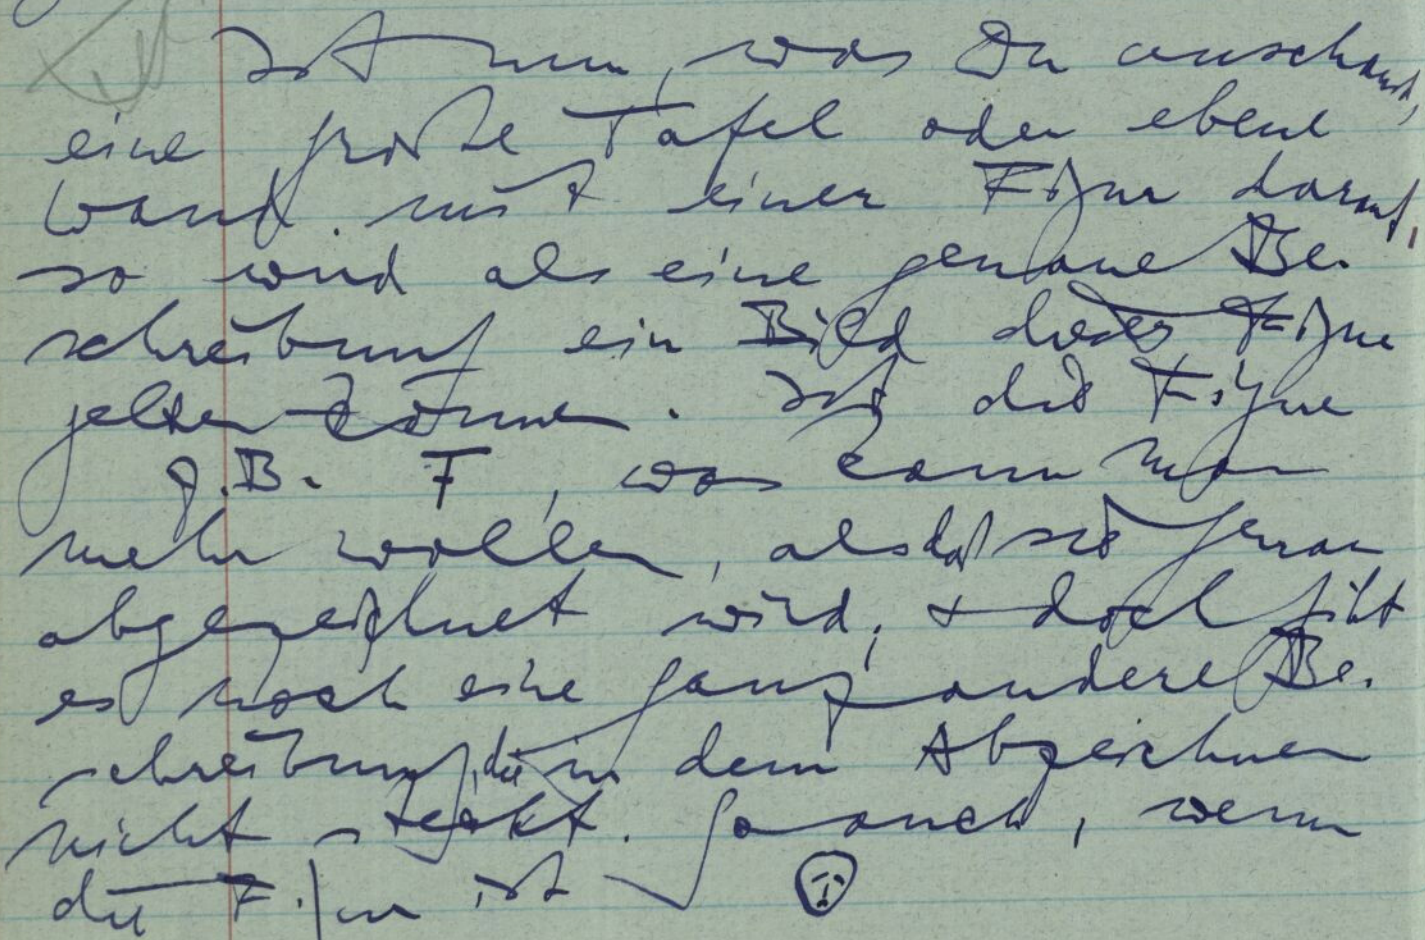 Ist nun, was Du anschaust,
eine große Tafel oder ebene
Wand mit einer Figur darauf,
so wird als eine genaue Be-
schreibung ein Bild dieser Figur
gelten können. Ist die Figur
z.B. F, was kann man
mehr wollen, als daß sie genau
abgezeichnet wird, + doch gibt
es noch eine ganz andere Be-
schreibung, die in dem Abzeichnen
nicht steckt. So auch, wenn
die Figur ist